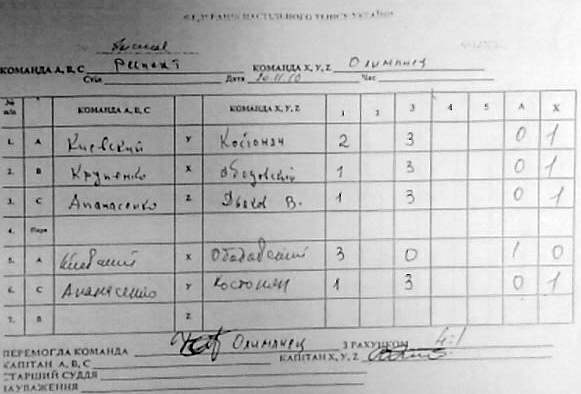 ФЕДЕРАЦІЯ НАСТІЛЬНОГО ТЕНІСУ УКРАЇНИ
КОМАНДА А, В, С Респект КОМАНДА X, Y, Z Олимпиец
Стіл Дата 20.11.10 Час
№ п/п КОМАНДА А, В, С КОМАНДА X, Y, Z 1 2 3 4 5 А X
1. А Киевский Y Костонян 2 3 0 1
2. В Крупенко X Ободовский 1 3 0 1
3. С Апанасенко Z Дьяков В. 1 3 0 1
4. Пара
5. А Киевский X Ободовский 3 0 1 0
6. С Апанасенко Y Костонян 1 3 0 1
7. В Z
ПЕРЕМОГЛА КОМАНДА Олимпиец З РАХУНКОМ 4:1
КАПІТАН А, В, С КАПІТАН X, Y, Z
СТАРШИЙ СУДДЯ
ЗАУВАЖЕННЯ